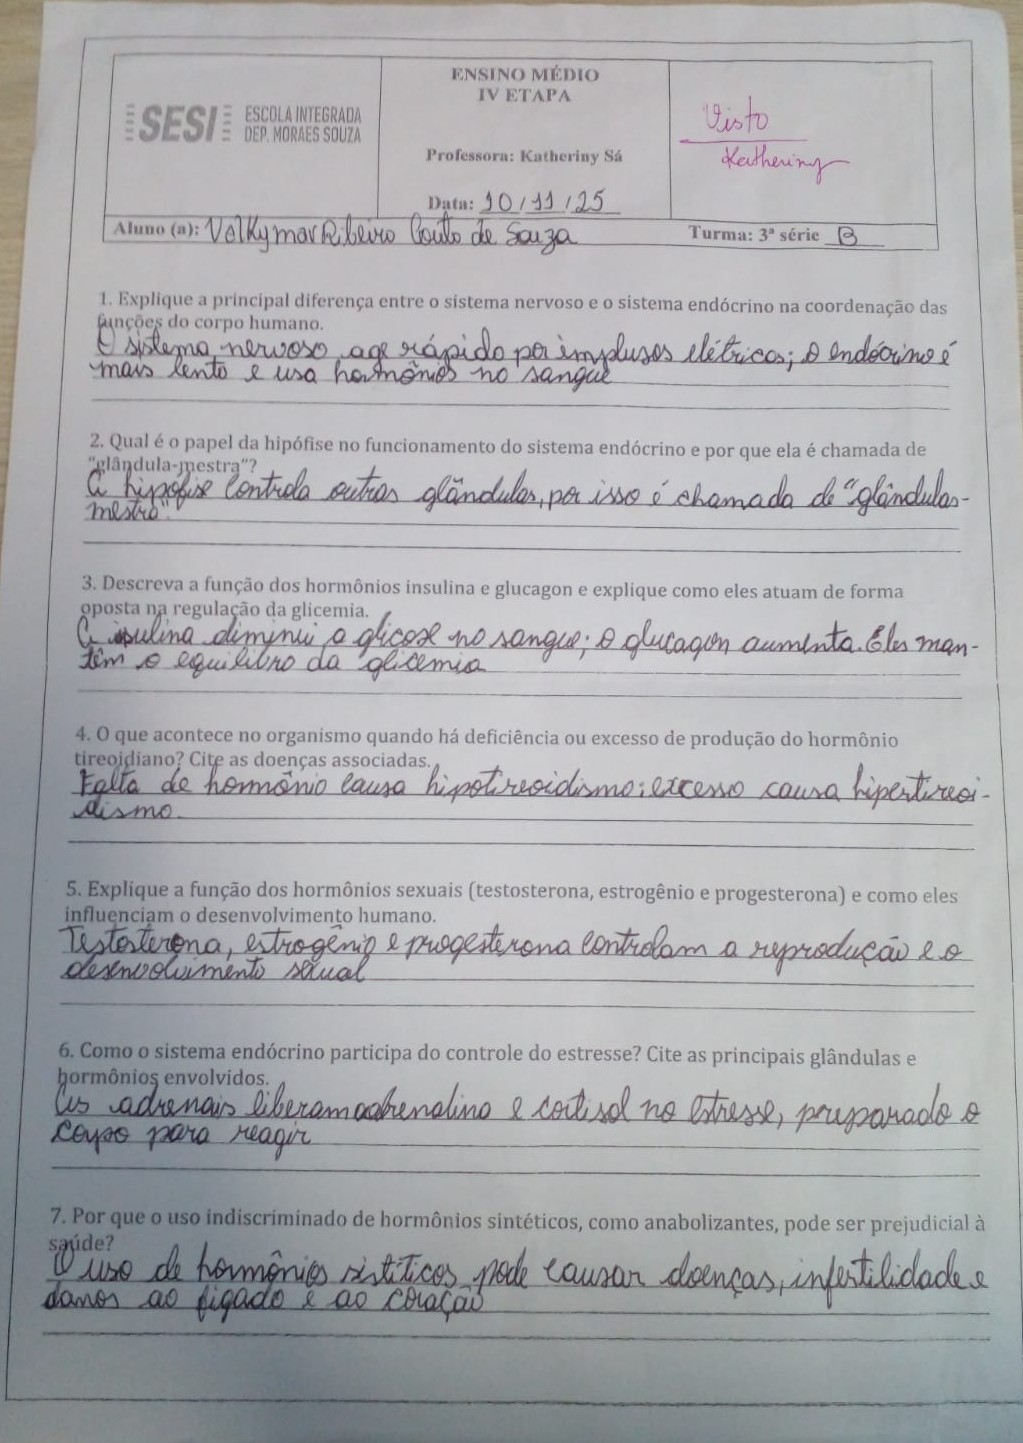 ENSINO MÉDIO
IV ETAPA
SESI ESCOLA INTEGRADA
DEP. MORAES SOUZA
Visto
Katheriny
Professora: Katheriny Sá
Data: 10/11/25
Aluno (a): Volkymar Ribeiro Couto de Souza Turma: 3ª série B
1. Explique a principal diferença entre o sistema nervoso e o sistema endócrino na coordenação das
funções do corpo humano.
O sistema nervoso age rápido por implusos elétricos; o endócrino é
mais lento e usa hormônios no sangue
2. Qual é o papel da hipófise no funcionamento do sistema endócrino e por que ela é chamada de
"glândula-mestra"?
A hipófise controla outras glândulas, por isso é chamada de "glândulas-
mestra".
3. Descreva a função dos hormônios insulina e glucagon e explique como eles atuam de forma
oposta na regulação da glicemia.
A insulina diminui a glicose no sangue; o glucagon aumenta. Eles man-
têm o equilibro da glicemia
4. O que acontece no organismo quando há deficiência ou excesso de produção do hormônio
tireoidiano? Cite as doenças associadas.
Falta de hormônio causa hipotireoidismo; excesso causa hipertireoi-
dismo.
5. Explique a função dos hormônios sexuais (testosterona, estrogênio e progesterona) e como eles
influenciam o desenvolvimento humano.
Testosterona, estrogênio e progesterona controlam a reprodução e o
desenvolvimento sexual
6. Como o sistema endócrino participa do controle do estresse? Cite as principais glândulas e
hormônios envolvidos.
As adrenais liberam adrenalina e cortisol no estresse, preparado o
corpo para reagir
7. Por que o uso indiscriminado de hormônios sintéticos, como anabolizantes, pode ser prejudicial à
saúde?
O uso de hormônios sistíticos pode causar doenças, infertilidade e
danos ao figado e ao coração